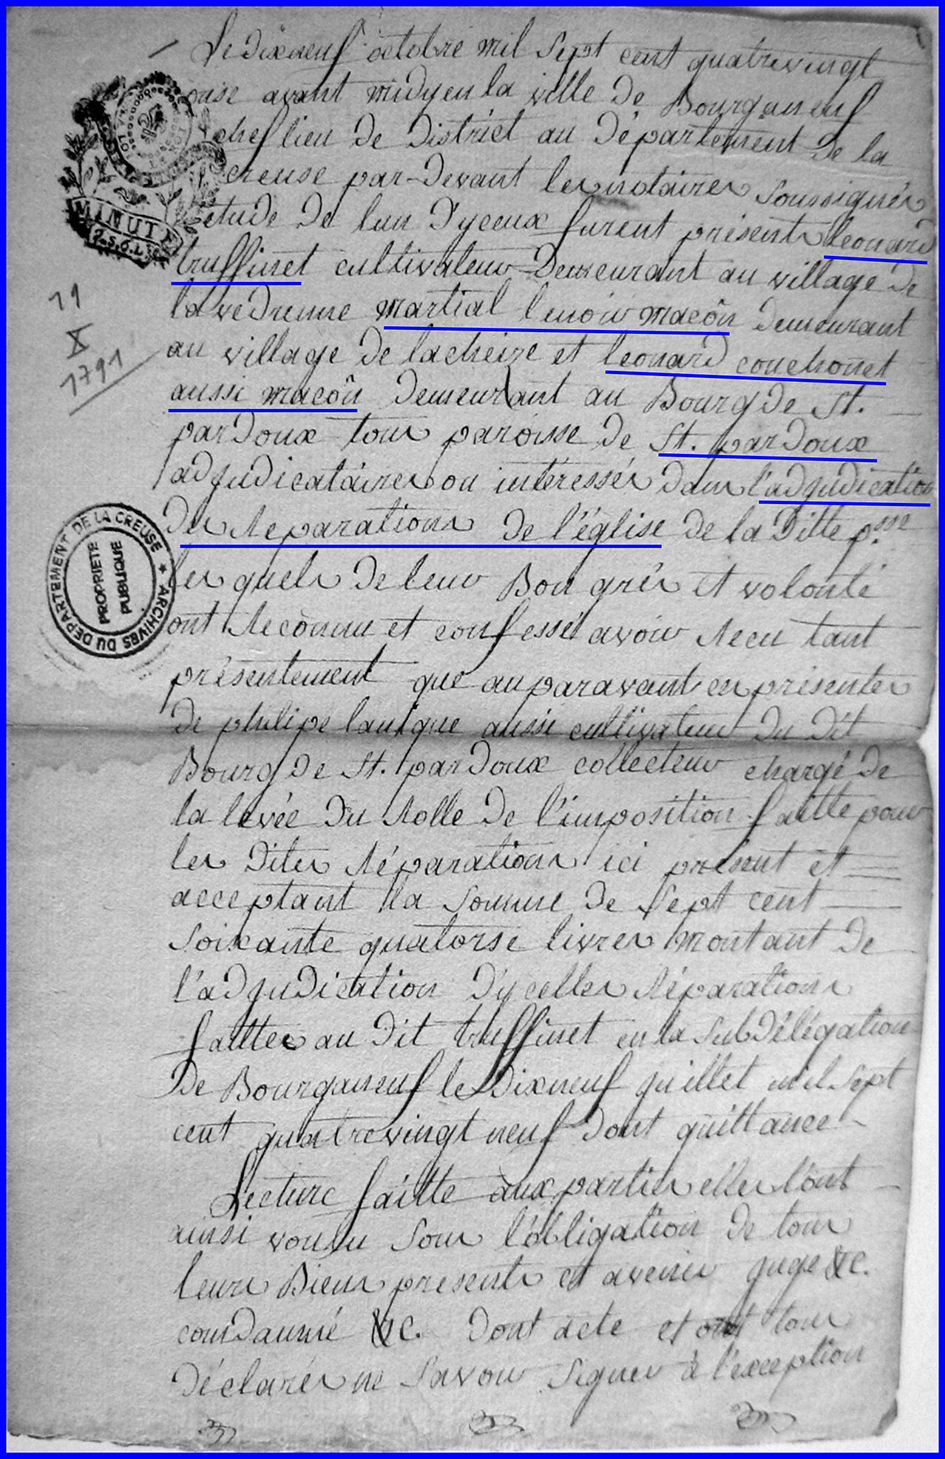 Le dixneuf octobre mil sept cent quatrevingt
onse avant midy en la ville de Bourganeuf
chef lieu de district au département de la
creuse par-devant les notaires soussignés
etude de lun d'yceux furent présents leonard
truffinet cultivateur demeurant au village de
la vedrenne martial lenoir maçon demeurant
au village de lacheize et leonard couchonnet
aussi maçon demeurant au Bourg de St.
pardoux tous paroisse de St. pardoux
adjudicataires ou intéressés dans l'adjudication
des réparations de l'église de la ditte p.sse
les quels de leur Bon grés et volonté
ont reconnu et confessé avoir recu tant
présentement que auparavant en présentes
de philipe lanique aussi cultivateur du dit
Bourg de St. pardoux collecteur chargé de
la levée du rolle de l'imposition faitte pour
les dites réparations ici présent et
acceptant la somme de sept cent
soixante quatorse livres montant de
l'adjudication d'ycelles réparations
faittes au dit truffinet en la subdélégation
de Bourganeuf le dixneuf juillet mil sept
cent quatrevingt neuf dont quittance
Lecture faitte aux parties elles l'ont
ainsi voulu sous l'obligation de tous
leurs Biens presents et avenir jugé &c.
condamné &c. dont acte et ont tous
déclarés ne savoir signer à l'exception
MINUTE
19
X
1791
ARCHIVES DU DEPARTEMENT DE LA CREUSE
PROPRIETE
PUBLIQUE